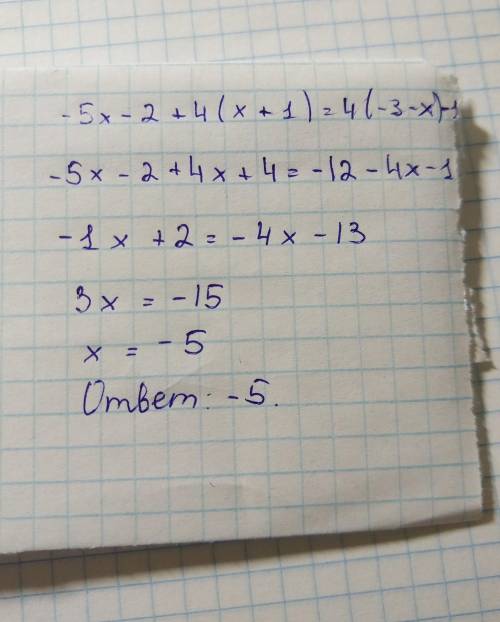 -5x-2+4(x+1)=4(-3-x)-1
-5x-2+4x+4=-12-4x-1
-1x+2=-4x-13
3x=-15
x=-5
Ответ: -5.